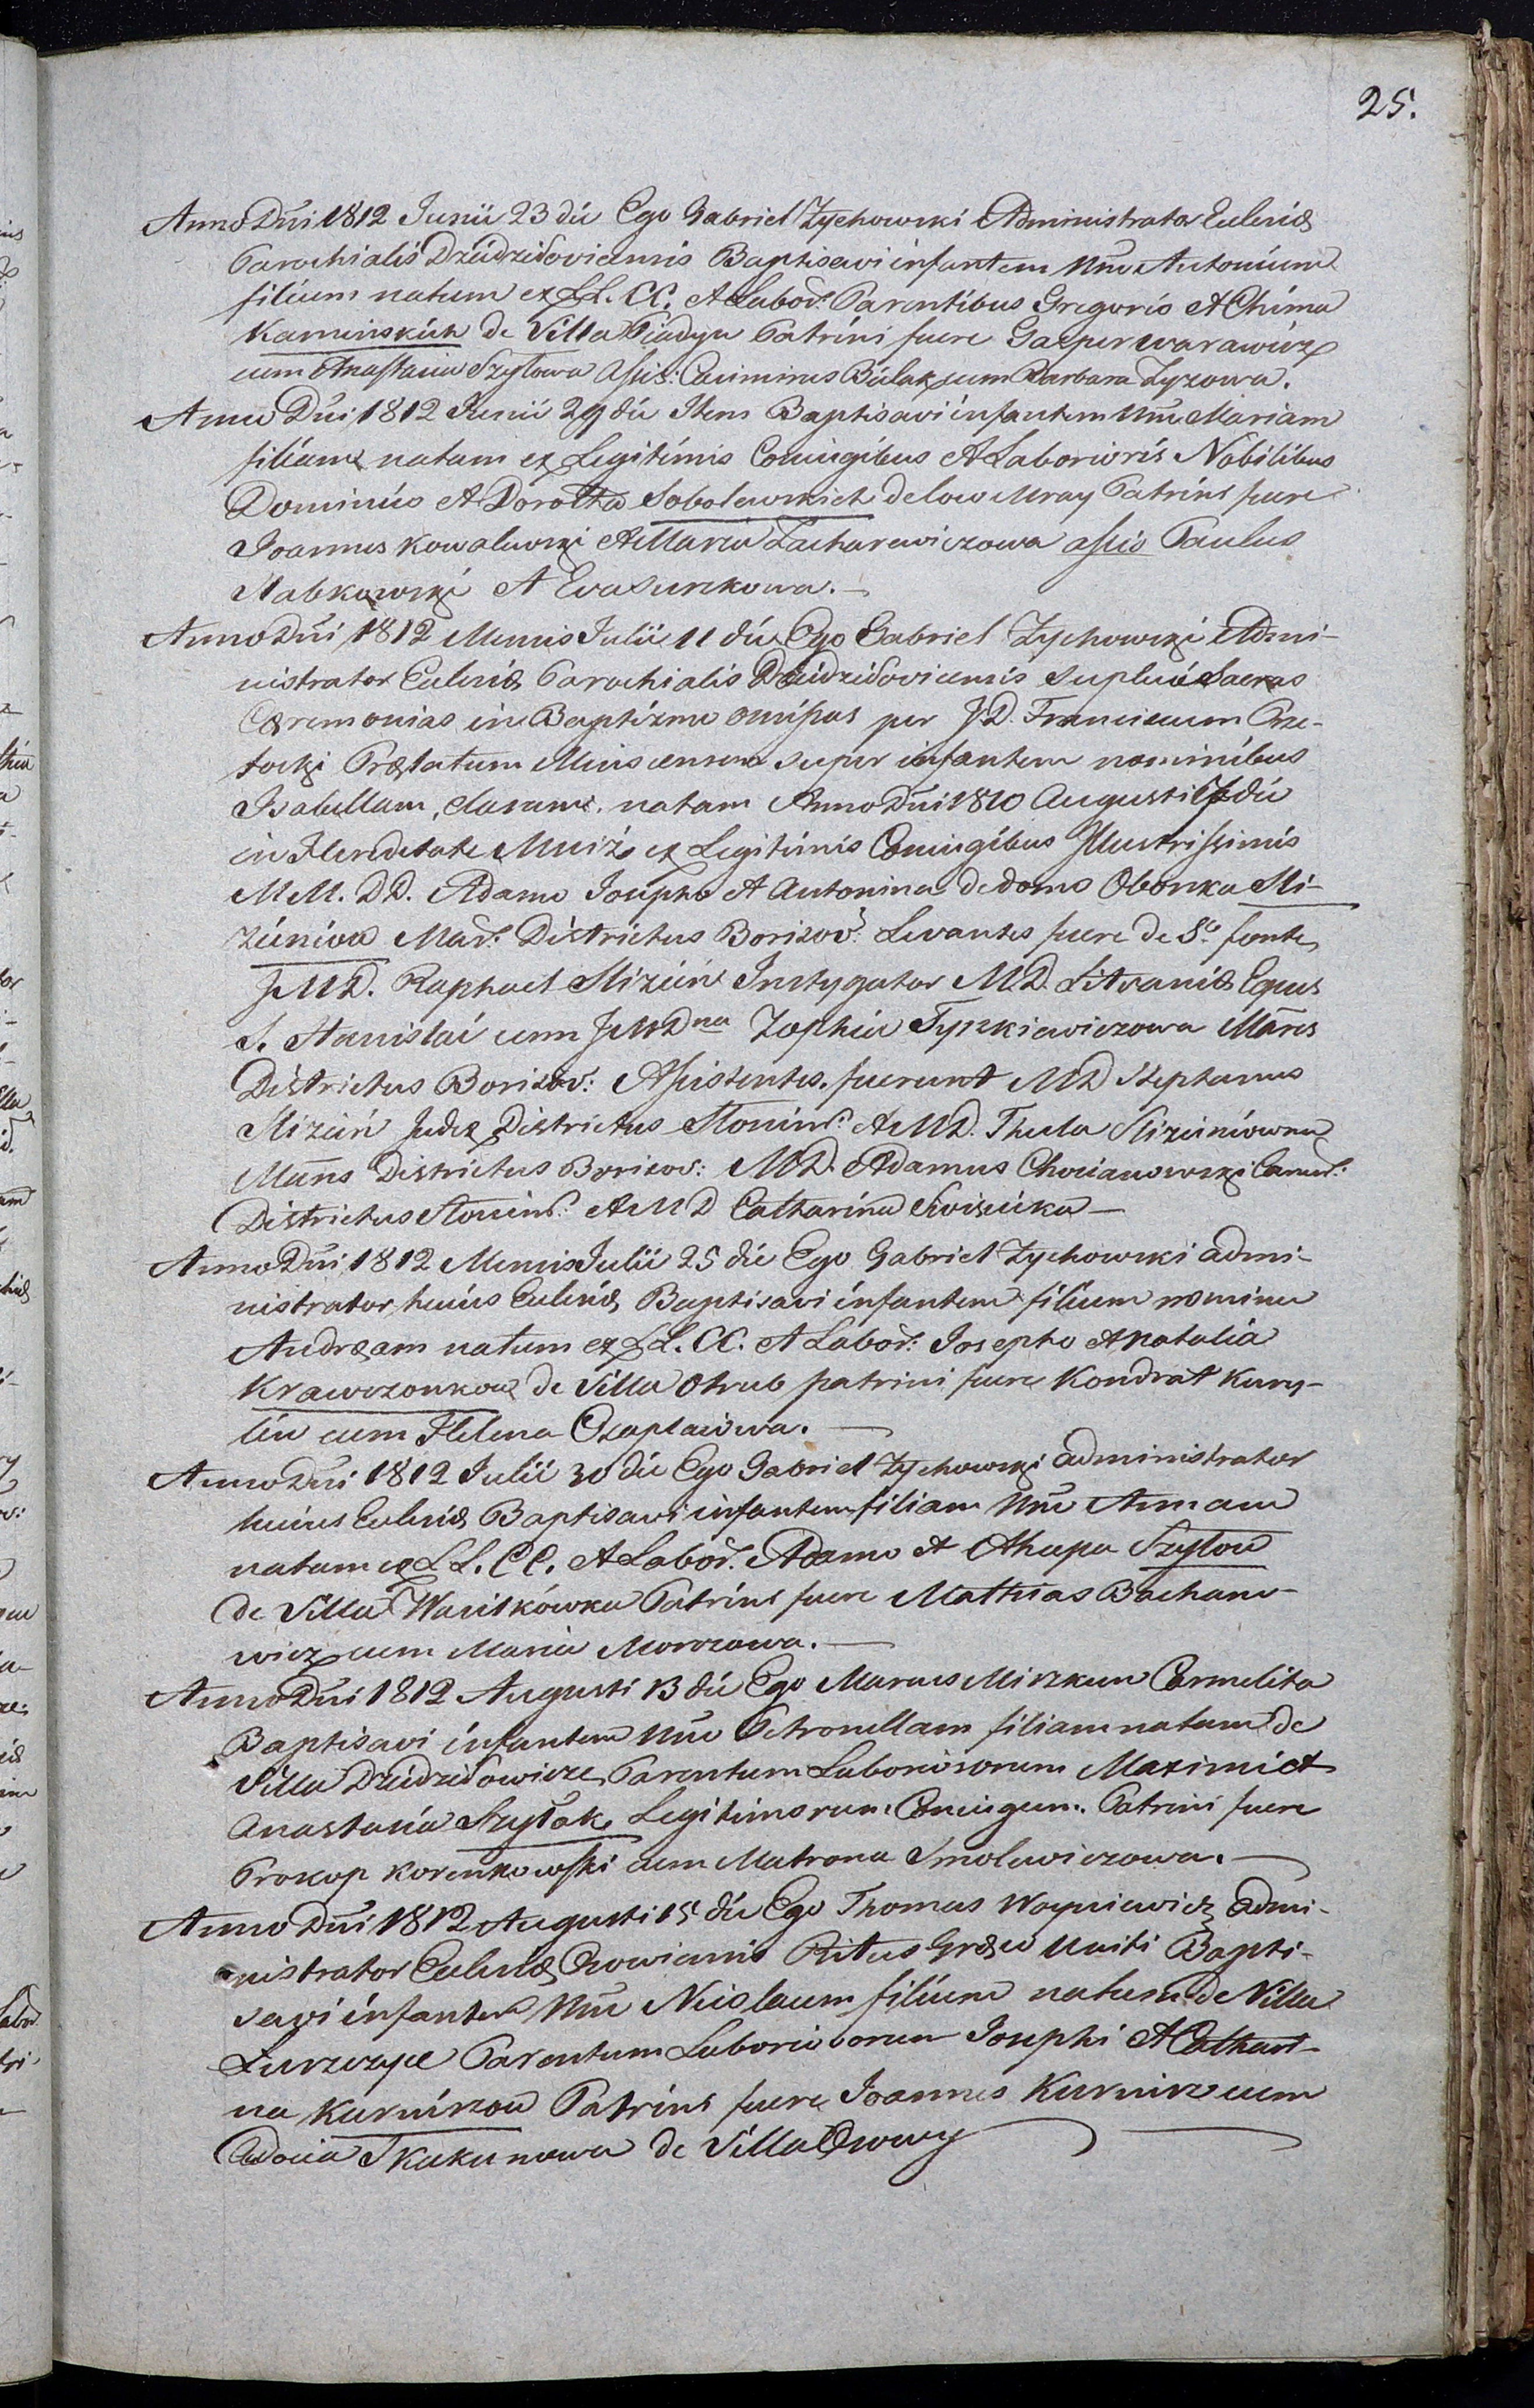 25.
Anno Dni 1812 Junii 23 die Ego Gabriel Zychowski Administrator Eccleniæ
Parochialis Dziedzidoviecensis Baptisavi infantem Nne Antonium
filium natum ex LL. CC. Et Labor: Parentibus Gregorio Et Chima
Kaminskich de Villa Patrini fuere Gasper warawicz
cum Anastasia Szyłowa Assis: Casimirus Bulak cum Barbara Zyzowa.
Anno Dni 1812 Junii 29 die Item Baptisavi infantem Nne Mariam
filiam natam ex Legitimis Coniugibus Et Laboriosis Nobilibus
Dominico Et Dorothea Sobolewskich de Patrini fuere
Joannes Kowalewski Et Maria Zacharewiczowa assis Paulus
Nabkowski Et Eva Surekowa.
Anno Dni 1812 Mensis Julii 11 die Ego Gabriel Zychowski Admi-
nistrator Eccleniæ Parochialis Dziedzidoviecensis suplevi Sacras
Cæremonias in Baptizme omissas per J.D. Franciscum Prze-
łocki Prælatum Minscensem super infantem nominibus
Isabellam, Claram natam Anno Dni 1810 Augusti 7 die
in Hereditate Mniż ex Legitimis Coniugibus Illustrissimis
MM. DD. Adamo Josepho Et Antonina de domo Oborska Sli-
zieniów Mar: Districtus Borisov: Levantes fuere de S° fonte
JMD. Raphael Slizień Instygator M.D. Litvaniæ Eques
S. Stanislai cum JMDna Zophia Tyszkiewiczowa Mares
Districtus Borisov: Assistentes fuerunt MD Stephanus
Slizień Judex Districtus Slonim: Et MD. Thecla Slizieniówna
Mares Districtus Borisov: MD. Adamus Chocianowski
Districtus Slonim: Et MD Catharina
Anno Dni 1812 Mensis Julii 25 die Ego Gabriel Zychowski admi-
nistrator huius Eccleniæ Baptisavi infantem filium nomine
Andræam natum ex LL. CC. Et Labor: Josepho Et Natalia
Krawczonkow de Villa Otrub patrini fuere Kondrat Kury-
lin cum Helena Czaplaiowa.
Anno Dni 1812 Julii 30 die Ego Gabriel Zychowski administrator
huius Eccleniæ Baptisavi infantem filiam Nne Annam
natam ex LL. CC. Et Labor. Adamo et Ahapa Szyłow
de Villa Wasilkówka Patrini fuere Mathias Bachano-
wicz cum Maria Morozowa.
Anno Dni 1812 Augusti 13 die Ego Marcus Miszkun Carmelita
Baptisavi infantem Nne Petronellam filiam natam de
Villa Dziedzidowicze Parentum Laboriosorum Maximi et
Anastasia Szyłak Legitimorum Coniugum. Patrini fuere
Prokop Korenkowski cum Matrona Smolewiczowa.
Anno Dni 1812 Augusti 15 die Ego Thomas Woyniewicz admi-
nistrator Eccleniæ Ritus Græco Uniti Bapti-
savi infantem Nne Nicolaum filium natum de Villa
Parentum Laboriosorum Josephi Et Cathari-
na Kurniszow Patrini fuere Joannes Kurnisz cum
Adocia Skakunowa de Villa